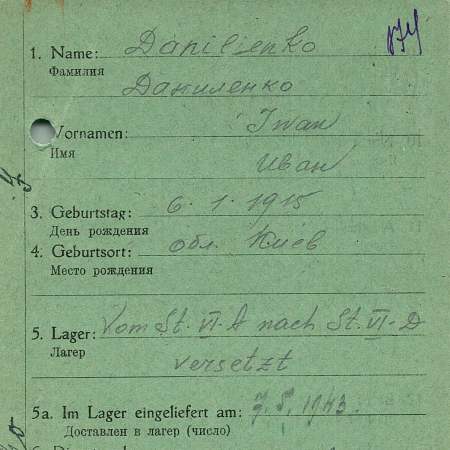 874
1. Name: Danilienko
Фамилия
Даниленко
Vornamen: Iwan
Имя
Иван
3. Geburtstag: 6. 1. 1915
День рождения
4. Geburtsort: обл. Киев
Место рождения
5. Lager: Vom St. VI-A nach St. VI-D
Лагер
versetzt
5a. Im Lager eingeliefert am: 7.8.1943.
Доставлен в лагер (число)